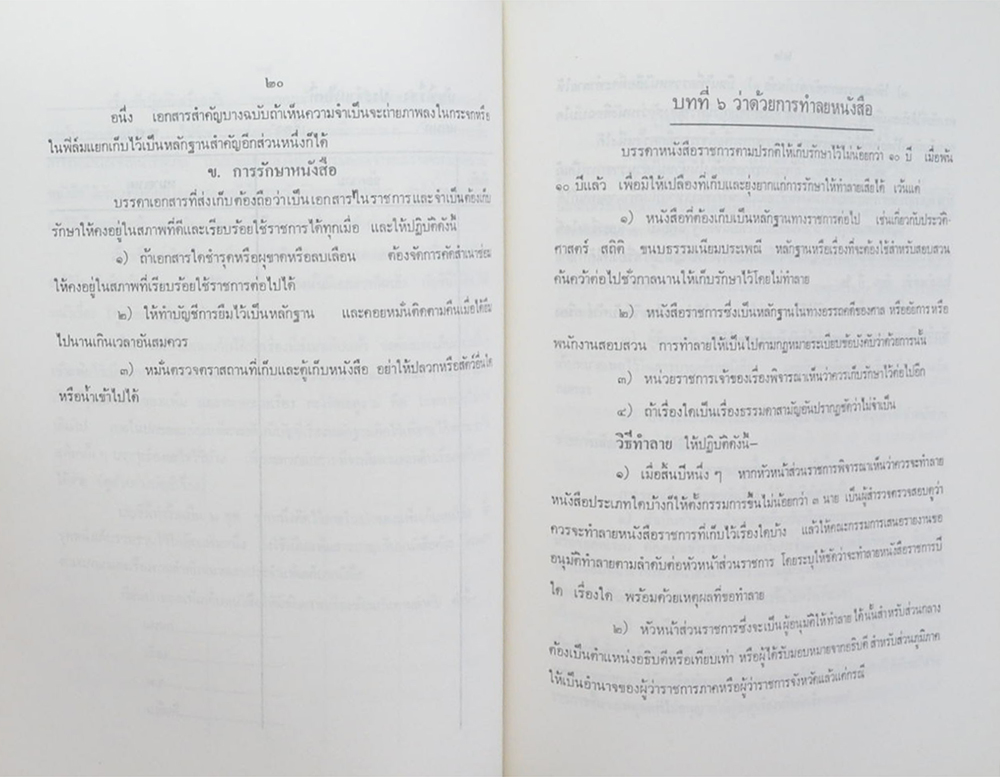 ๒๐
อนึ่ง เอกสารสำคัญบางฉบับถ้าเห็นความจำเป็นจะถ่ายภาพลงในกระจกหรือ
ในฟิล์มแยกเก็บไว้เป็นหลักฐานสำคัญอีกส่วนหนึ่งก็ได้
ข. การรักษาหนังสือ
บรรดาเอกสารที่ส่งเก็บต้องถือว่าเป็นเอกสารใช้ในราชการและจำเป็นต้องเก็บ
รักษาให้คงอยู่ในสภาพที่ดีและเรียบร้อยใช้ราชการได้ทุกเมื่อ และให้ปฏิบัติดังนี้
๑) ถ้าเอกสารใดชำรุดหรือผุขาดหรือลบเลือน ต้องจัดการคัดสำเนาซ่อม
ให้คงอยู่ในสภาพที่เรียบร้อยใช้ราชการต่อไปได้
๒) ให้ทำบัญชีการยืมไว้เป็นหลักฐาน และคอยหมั่นติดตามคืนเมื่อได้ยืม
ไปนานเกินเวลาอันสมควร
๓) หมั่นตรวจตราสถานที่เก็บและตู้เก็บหนังสือ อย่าให้ปลวกหรือสัตว์อื่นใด
หรือน้ำเข้าไปได้
บทที่ ๖ ว่าด้วยการทำลายหนังสือ
บรรดาหนังสือราชการตามปรกติให้เก็บรักษาไว้ไม่น้อยกว่า ๑๐ ปี เมื่อพ้น
๑๐ ปีแล้ว เพื่อมิให้เปลืองที่เก็บและยุ่งยากแก่การรักษาให้ทำลายเสียได้ เว้นแต่
๑) หนังสือที่ต้องเก็บเป็นหลักฐานทางราชการต่อไป เช่นเกี่ยวกับประวัติ-
ศาสตร์ สถิติ ขนบธรรมเนียมประเพณี หลักฐานหรือเรื่องที่จะต้องใช้สำหรับสอบสวน
ค้นคว้าต่อไปชั่วกาลนานให้เก็บรักษาไว้โดยไม่ทำลาย
๒) หนังสือราชการซึ่งเป็นหลักฐานในทางอรรถคดีของศาล หรืออัยการหรือ
พนักงานสอบสวน การทำลายให้เป็นไปตามกฎหมายระเบียบข้อบังคับว่าด้วยการนั้น
๓) หน่วยราชการเจ้าของเรื่องพิจารณาเห็นว่าควรเก็บรักษาไว้ต่อไปอีก
๔) ถ้าเรื่องใดเป็นเรื่องธรรมดาสามัญอันปรากฏชัดว่าไม่จำเป็น
วิธีทำลาย ให้ปฏิบัติดังนี้–
๑) เมื่อสิ้นปีหนึ่ง ๆ หากหัวหน้าส่วนราชการพิจารณาเห็นว่าควรจะทำลาย
หนังสือประเภทใดบ้างก็ให้ตั้งกรรมการขึ้นไม่น้อยกว่า ๓ นาย เป็นผู้สำรวจตรวจสอบดูว่า
ควรจะทำลายหนังสือราชการที่เก็บไว้เรื่องใดบ้าง แล้วให้คณะกรรมการเสนอรายงานขอ
อนุมัติทำลายตามลำดับต่อหัวหน้าส่วนราชการ โดยระบุให้ชัดว่าจะทำลายหนังสือราชการปี
ใด เรื่องใด พร้อมด้วยเหตุผลที่ขอทำลาย
๒) หัวหน้าส่วนราชการซึ่งจะเป็นผู้อนุมัติให้ทำลายได้นั้นสำหรับส่วนกลาง
ต้องเป็นตำแหน่งอธิบดีหรือเทียบเท่า หรือผู้ได้รับมอบหมายจากอธิบดี สำหรับส่วนภูมิภาค
ให้เป็นอำนาจของผู้ว่าราชการภาคหรือผู้ว่าราชการจังหวัดแล้วแต่กรณี